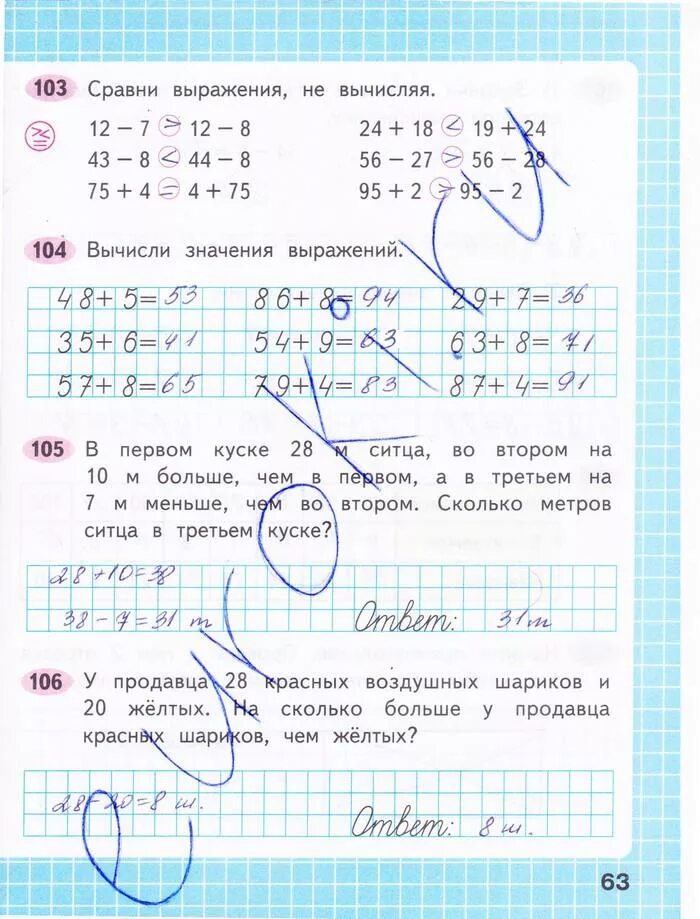 103 Сравни выражения, не вычисляя.
12 − 7 > 12 − 8 24 + 18 < 19 + 24
43 − 8 < 44 − 8 56 − 27 > 56 − 28
75 + 4 = 4 + 75 95 + 2 > 95 − 2
104 Вычисли значения выражений.
48+5=53 86+8=94 29+7=36
35+6=41 54+9=63 63+8=71
57+8=65 79+4=83 87+4=91
105 В первом куске 28 м ситца, во втором на
10 м больше, чем в первом, а в третьем на
7 м меньше, чем во втором. Сколько метров
ситца в третьем куске?
28+10=38
38−7=31 m Ответ: 31 m
106 У продавца 28 красных воздушных шариков и
20 жёлтых. На сколько больше у продавца
красных шариков, чем жёлтых?
28−20=8 ш.
Ответ: 8 ш.
63